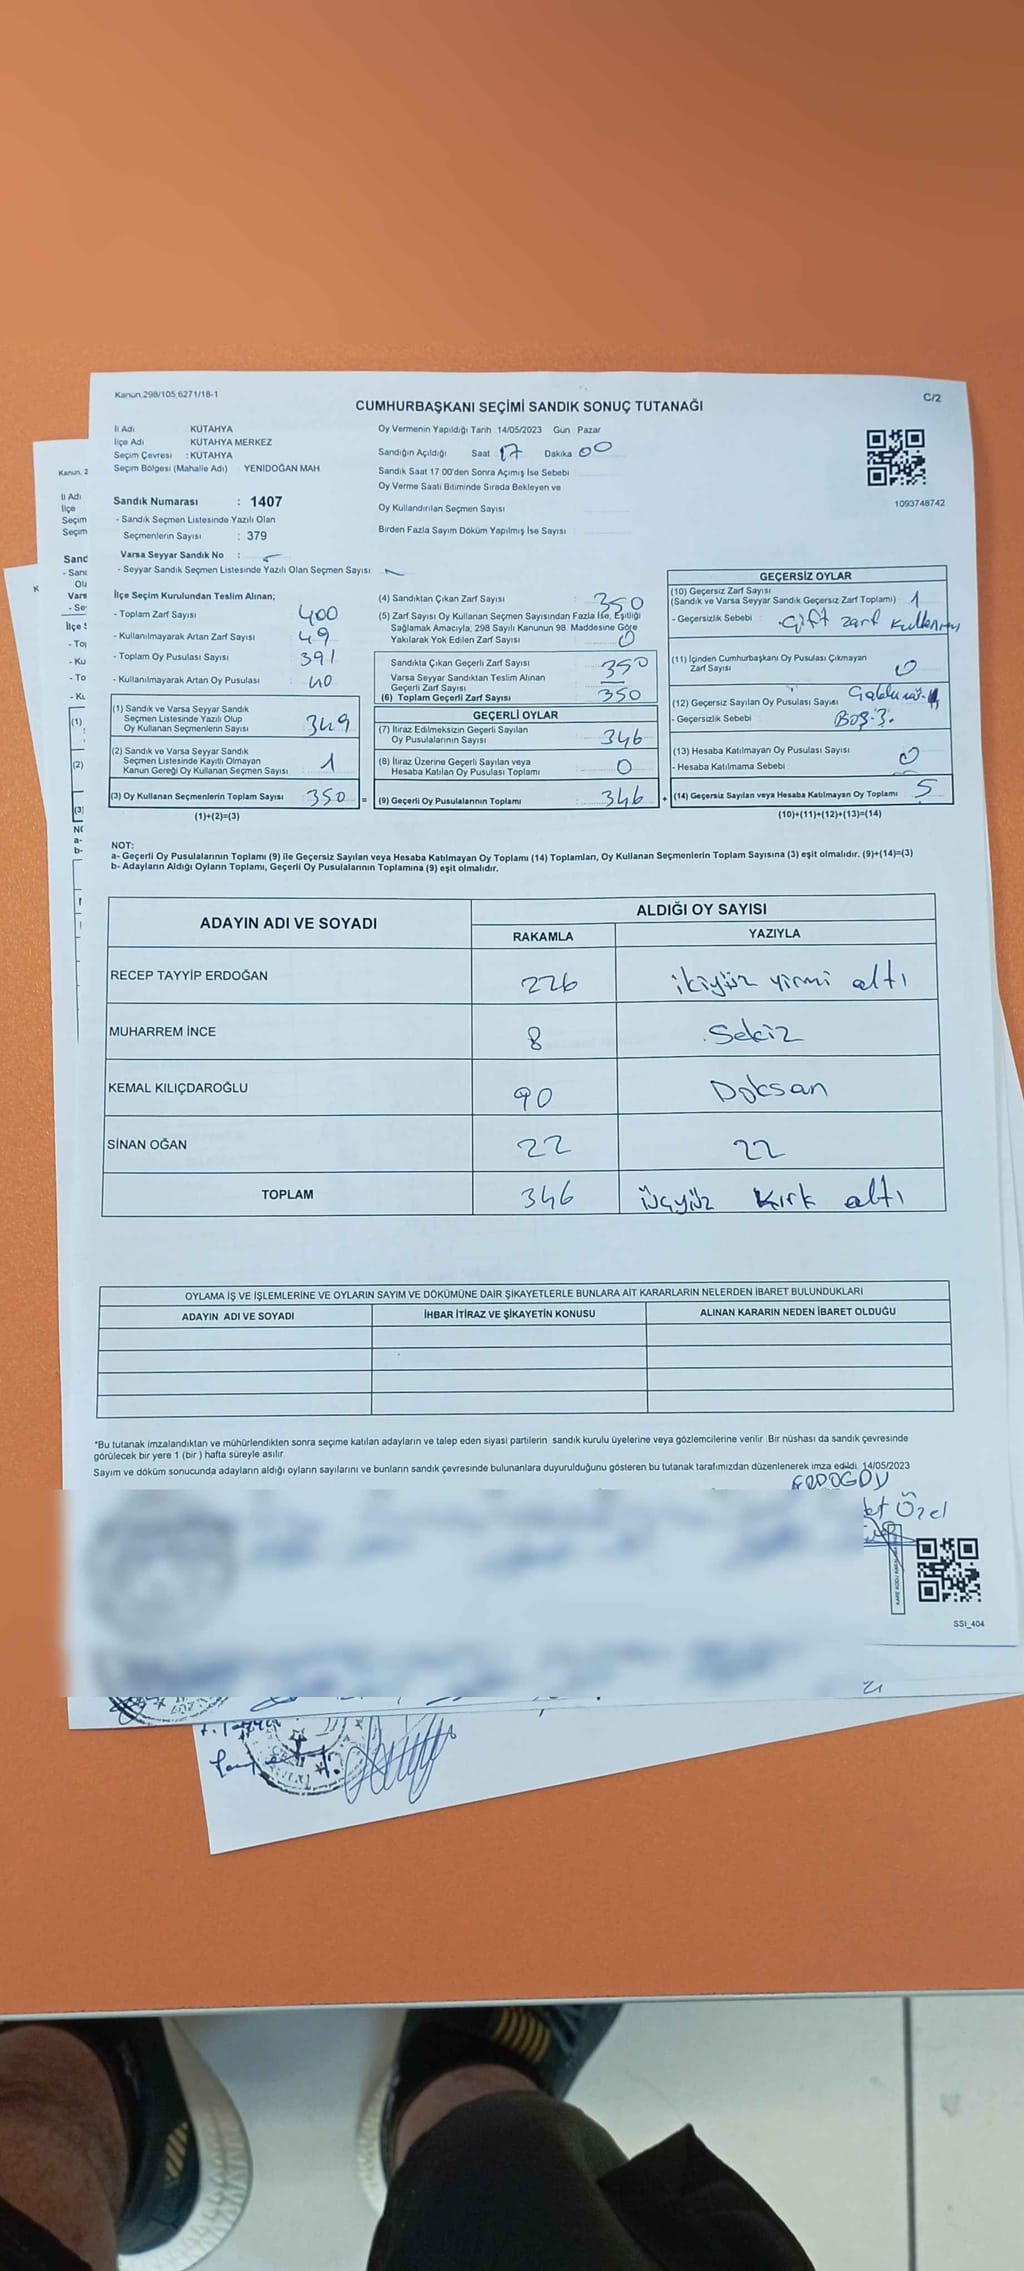 Kanun.298/105,6271/18-1
C/2
CUMHURBAŞKANI SEÇİMİ SANDIK SONUÇ TUTANAĞI
İl Adı KÜTAHYA
İlçe Adı KÜTAHYA MERKEZ
Seçim Çevresi : KÜTAHYA
Seçim Bölgesi (Mahalle Adı) YENİDOĞAN MAH
Sandık Numarası : 1407
- Sandık Seçmen Listesinde Yazılı Olan
Seçmenlerin Sayısı : 379
Varsa Seyyar Sandık No :
- Seyyar Sandık Seçmen Listesinde Yazılı Olan Seçmen Sayısı:
Oy Vermenin Yapıldığı Tarih 14/05/2023 Gün Pazar
Sandığın Açıldığı Saat 17 Dakika 00
Sandık Saat 17.00'den Sonra Açımış İse Sebebi
Oy Verme Saati Bitiminde Sırada Bekleyen ve
Oy Kullandırılan Seçmen Sayısı
Birden Fazla Sayım Döküm Yapılmış İse Sayısı
1093748742
İlçe Seçim Kurulundan Teslim Alınan;
- Toplam Zarf Sayısı 400
- Kullanılmayarak Artan Zarf Sayısı : 49
- Toplam Oy Pusulası Sayısı 391
- Kullanılmayarak Artan Oy Pusulası : 40
(1) Sandık ve Varsa Seyyar Sandık
Seçmen Listesinde Yazılı Olup
Oy Kullanan Seçmenlerin Sayısı 349
(2) Sandık ve Varsa Seyyar Sandık
Seçmen Listesinde Kayıtlı Olmayan
Kanun Gereği Oy Kullanan Seçmen Sayısı 1
(3) Oy Kullanan Seçmenlerin Toplam Sayısı 350 =
(1)+(2)=(3)
(4) Sandıktan Çıkan Zarf Sayısı : 350
(5) Zarf Sayısı Oy Kullanan Seçmen Sayısından Fazla İse, Eşitliği
Sağlamak Amacıyla, 298 Sayılı Kanunun 98. Maddesine Göre
Yakılarak Yok Edilen Zarf Sayısı 0
Sandıkta Çıkan Geçerli Zarf Sayısı 350
Varsa Seyyar Sandıktan Teslim Alınan
Geçerli Zarf Sayısı
(6) Toplam Geçerli Zarf Sayısı 350
GEÇERLİ OYLAR
(7) İtiraz Edilmeksizin Geçerli Sayılan
Oy Pusulalarının Sayısı 346
(8) İtiraz Üzerine Geçerli Sayılan veya
Hesaba Katılan Oy Pusulası Toplamı 0
(9) Geçerli Oy Pusulalarının Toplamı : 346 +
GEÇERSİZ OYLAR
(10) Geçersiz Zarf Sayısı
(Sandık ve Varsa Seyyar Sandık Geçersiz Zarf Toplamı) 1
- Geçersizlik Sebebi : Çift zarf kullanımı
(11) İçinden Cumhurbaşkanı Oy Pusulası Çıkmayan
Zarf Sayısı 0
(12) Geçersiz Sayılan Oy Pusulası Sayısı
- Geçersizlik Sebebi Boş
(13) Hesaba Katılmayan Oy Pusulası Sayısı 0
- Hesaba Katılmama Sebebi
(14) Geçersiz Sayılan veya Hesaba Katılmayan Oy Toplamı 5
(10)+(11)+(12)+(13)=(14)
NOT:
a- Geçerli Oy Pusulalarının Toplamı (9) ile Geçersiz Sayılan veya Hesaba Katılmayan Oy Toplamı (14) Toplamları, Oy Kullanan Seçmenlerin Toplam Sayısına (3) eşit olmalıdır. (9)+(14)=(3)
b- Adayların Aldığı Oyların Toplamı, Geçerli Oy Pusulalarının Toplamına (9) eşit olmalıdır.
ADAYIN ADI VE SOYADI ALDIĞI OY SAYISI
RAKAMLA YAZIYLA
RECEP TAYYİP ERDOĞAN 226 ikiyüz yirmi altı
MUHARREM İNCE 8 Sekiz
KEMAL KILIÇDAROĞLU 90 Doksan
SİNAN OĞAN 22 22
TOPLAM 346 üçyüz kırk altı
OYLAMA İŞ VE İŞLEMLERİNE VE OYLARIN SAYIM VE DÖKÜMÜNE DAİR ŞİKAYETLERLE BUNLARA AİT KARARLARIN NELERDEN İBARET BULUNDUKLARI
ADAYIN ADI VE SOYADI İHBAR İTİRAZ VE ŞİKAYETİN KONUSU ALINAN KARARIN NEDEN İBARET OLDUĞU
*Bu tutanak imzalandıktan ve mühürlendikten sonra seçime katılan adayların ve talep eden siyasi partilerin sandık kurulu üyelerine veya gözlemcilerine verilir. Bir nüshası da sandık çevresinde
görülecek bir yere 1 (bir ) hafta süreyle asılır.
Sayım ve döküm sonucunda adayların aldığı oyların sayılarını ve bunların sandık çevresinde bulunanlara duyurulduğunu gösteren bu tutanak tarafımızdan düzenlenerek imza edildi. 14/05/2023
Özel
SSI_404